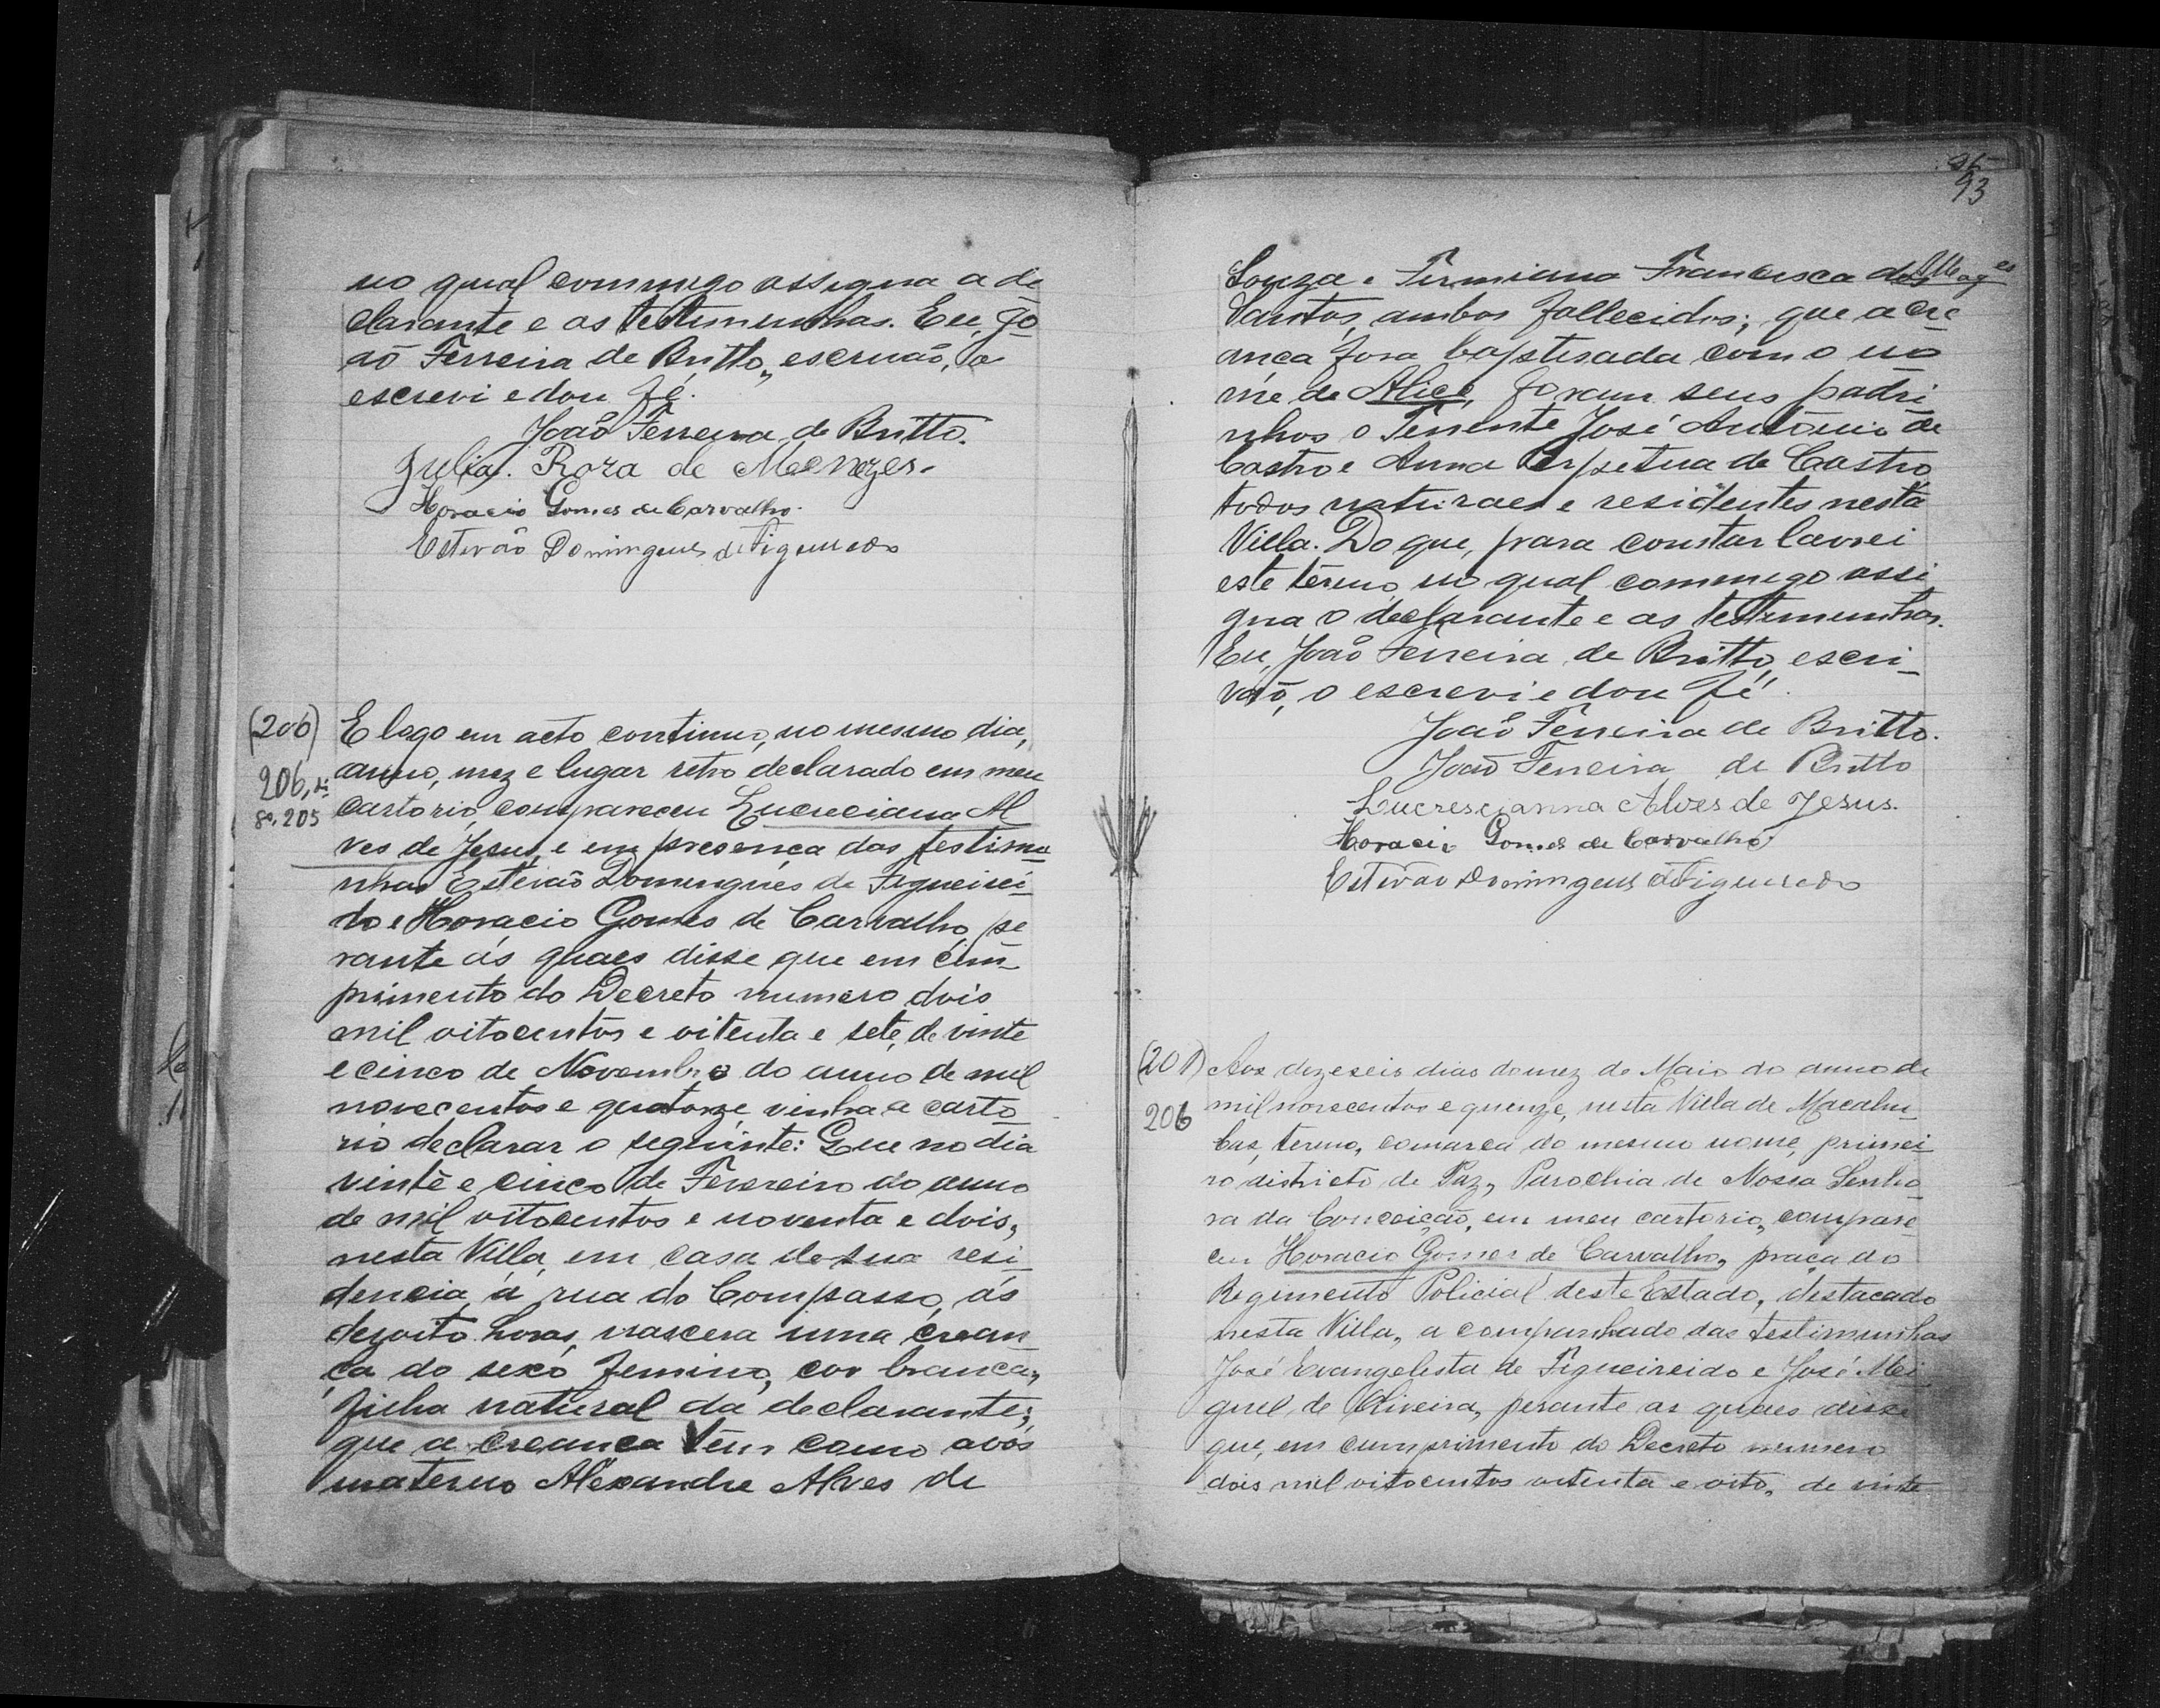 no qual commigo assigna a de
clarante e as testimunhas. Eu, Jo
aõ Ferreira de Britto, escrivaõ, o
escrevi e dou fé.
Joaõ Ferreira de Britto.
Julia Roza de Menezes.
Horacio Gomes de Carvalho.
Estevão Domingues de Figueiredo
(206) E logo em acto continuo, no mesmo dia,
206, anno, mez e lugar retro declarado em meu
205 cartorio, compareceu Lucreciana Al
ves de Jesus, e em presença das testimu
nhas Estevão Domingues de Figueirei
do e Horacio Gomes de Carvalho, pe
rante ás quaes disse que em cum
primento do Decreto numero dois
mil oitocentos e oitenta e sete, de vinte
e cinco de Novembro do anno de mil
novecentos e quatorze, vinha a carto
rio declarar o seguinte: Que no dia
vinte e cinco de Fevereiro do anno
de mil oitocentos e noventa e dois,
nesta Villa, em casa de sua resi
dencia á rua do Compasso, ás
desoito horas, nascera uma crean
ça do sexo femino, cor branca,
filha natural da declarante;
que a creança têm como avós
materno Alexandre Alves de
93
Souza e Firmiana Francisca dos
Santos, ambos fallecidos; que a cre
ança fora baptisada com o no
me de Alice, foram seus padri
nhos o Tenente José Antonio de
Castro e Anna Perpetua de Castro,
todos naturaes e residentes nesta
Villa. Do que, para constar lavrei
este têrmo, no qual commigo assi
gna o declarante e as testimunhas.
Eu, Joaõ Ferreira de Britto, escri-
vaõ, o escrevi e dou fé.
Joaõ Ferreira de Britto.
Joaõ Ferreira de Britto
Lucrescianna Alves de Jesus.
Horacio Gomes de Carvalho
Estevão Domingues de Figueiredo
(207) Aos dezeseis dias do mez de Maio do anno de
206 mil novecentos e quinze, nesta Villa de Macahu
bas, termo, comarca do mesmo nome, primei
ro districto de Paz, Parochia de Nossa Senho
ra da Conceição, em meu cartorio, compare
ceu Horacio Gomes de Carvalho, praça do
Regimento Policial deste Estado, destacado
nesta Villa, a companhado das testimunhas
José Evangelista de Figueireido e José Mei
guel de Oliveira, perante as quaes disse
que, em cumprimento do Decreto numero
dois mil oitocentos oitenta e oito, de vinte